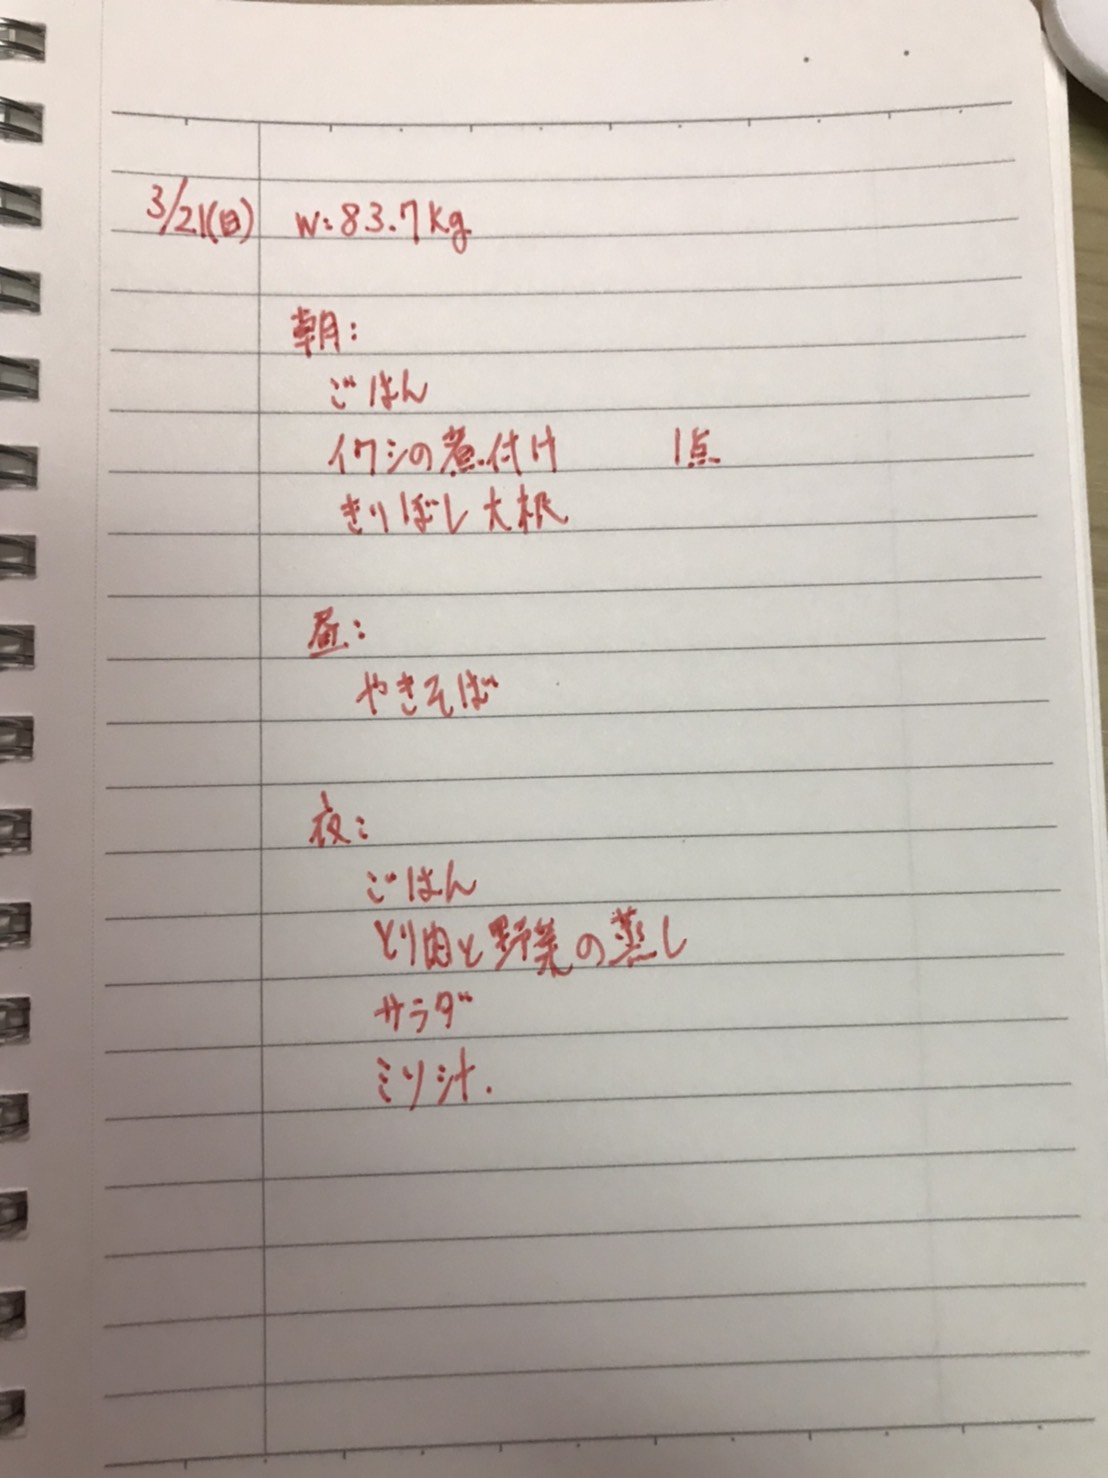 3/21(日) W:83.7kg
朝:
ごはん
イワシの煮付け 1点
きりぼし大根
昼:
やきそば
夜:
ごはん
とり肉と野菜の蒸し
サラダ
ミソ汁.